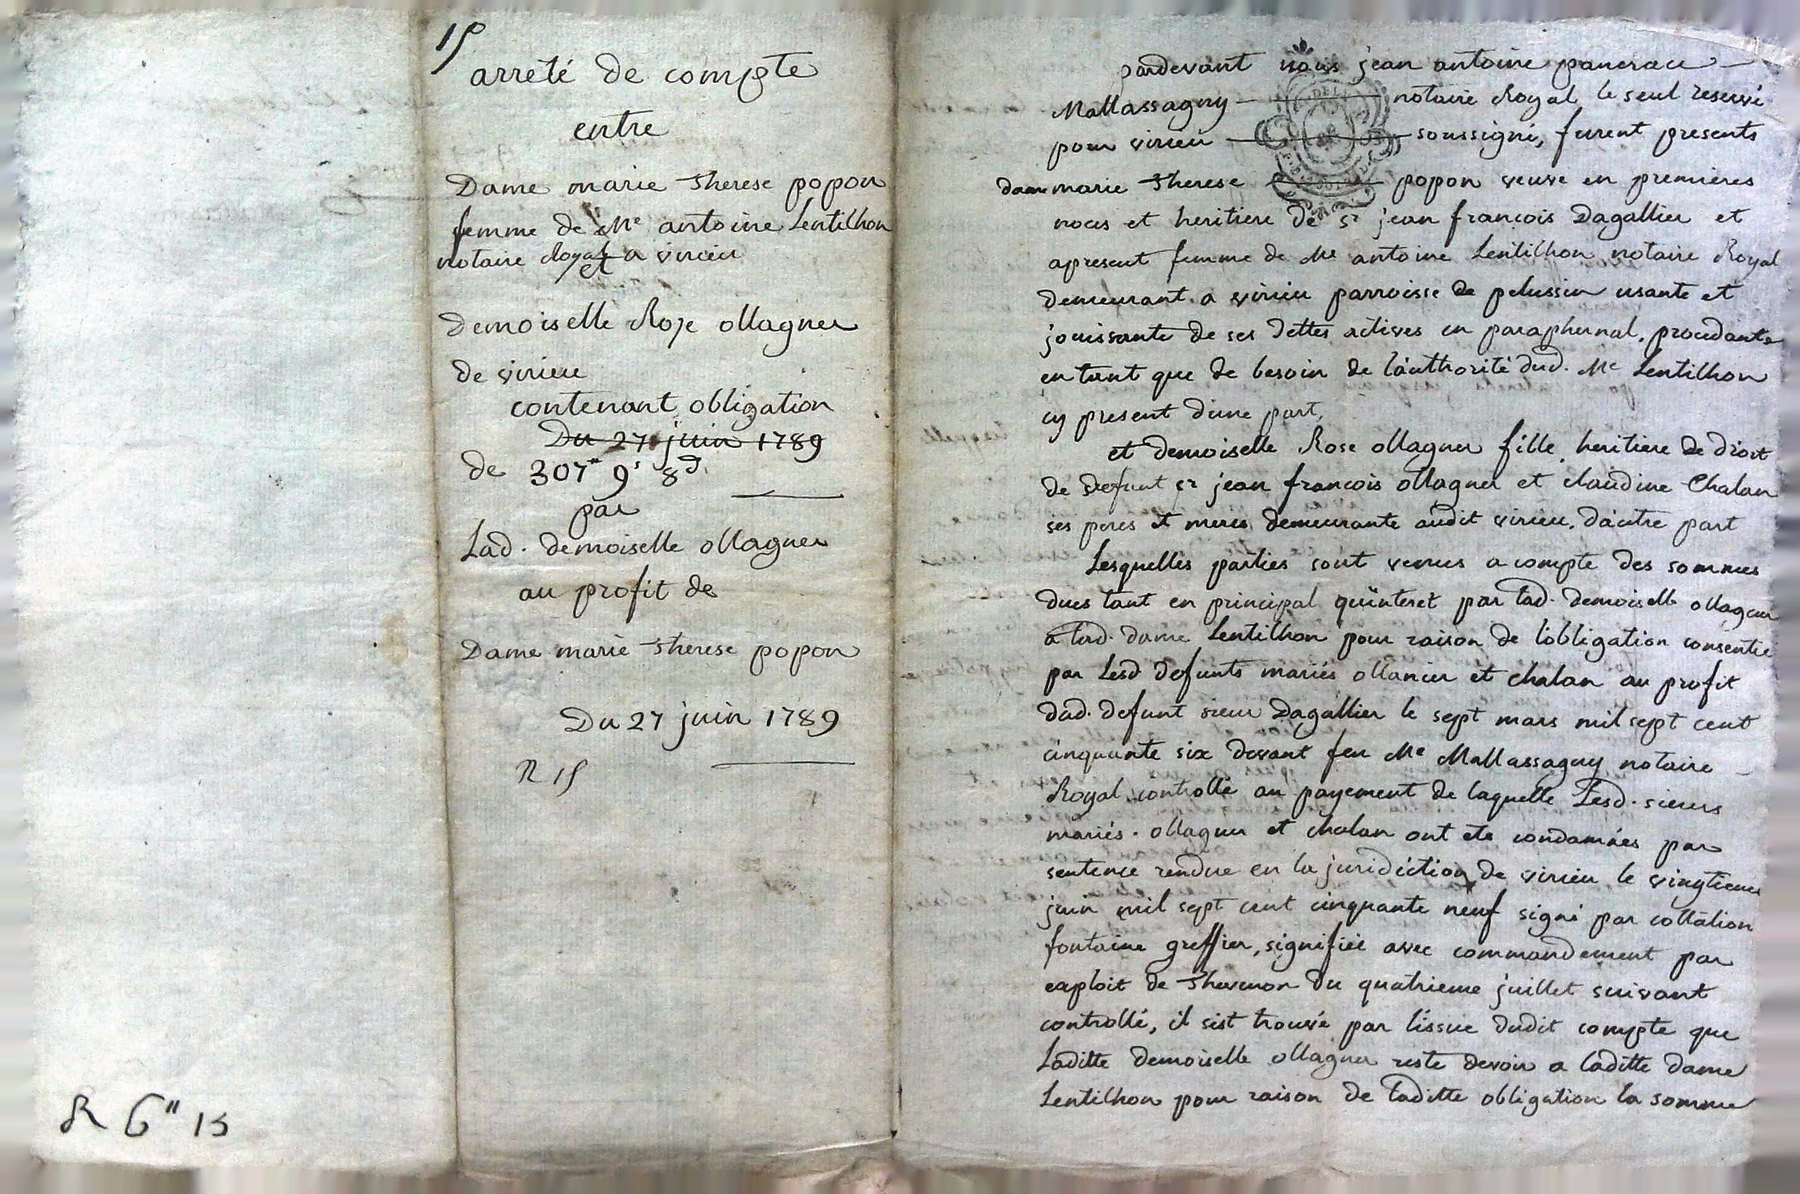 15
arreté de compte
entre
Dame marie therese popon
femme de Me antoine Lentilhon
notaire Royal a virieu
et
demoiselle Roze ollagner
de virieu
contenant obligation
Du 27 juin 1789
de 307" 9s 8d
par
Lad. demoiselle ollagner
au profit de
Dame marie therese popon
Du 27 juin 1789
R 15
R 6" 15
pardevant nous jean antoine pancrace
Mallassagny notaire Royal le seul reservé
pour virieu soussigné, furent presents
dame marie therese popon veuve en premieres
noces et heritiere de sr jean françois Dagallier et
apresent femme de Me antoine Lentilhon notaire Royal
demeurant a virieu parroisse de pelussin usante et
jouissante de ses dettes actives en paraphernal, procedante
en tant que de besoin de láuthorité dud. Me Lentilhon
cy present d'une part,
et demoiselle Rose ollagner fille, heritiere de droit
de defunt sr jean françois ollagner et claudine Chalan
ses peres et meres demeurante audit virieu, dáutre part
Lesquelles parties sont venues a compte des sommes
dues tant en principal qu'interet par lad. demoiselle ollagner
a lad. dame Lentilhon pour raison de l'obligation consentie
par Lesd defunts mariés ollanier et chalan au profit
dud. defunt sieur Dagallier le sept mars mil sept cent
cinquante six devant feu Me Mallassagny notaire
Royal controllé au payement de laquelle Lesd. sieurs
mariés. ollagner et chalan ont ete condamnés par
sentence rendue en la juridiction de virieu le vingtieme
juin mil sept cent cinquante neuf signé par collation
fontaine greffier, signifiée avec commandement par
exploit de du quatrieme juillet suivant
controllé, il s'est trouvé par l'issue dudit compte que
Laditte demoiselle ollagner reste devoir a laditte dame
Lentilhon pour raison de laditte obligation la somme